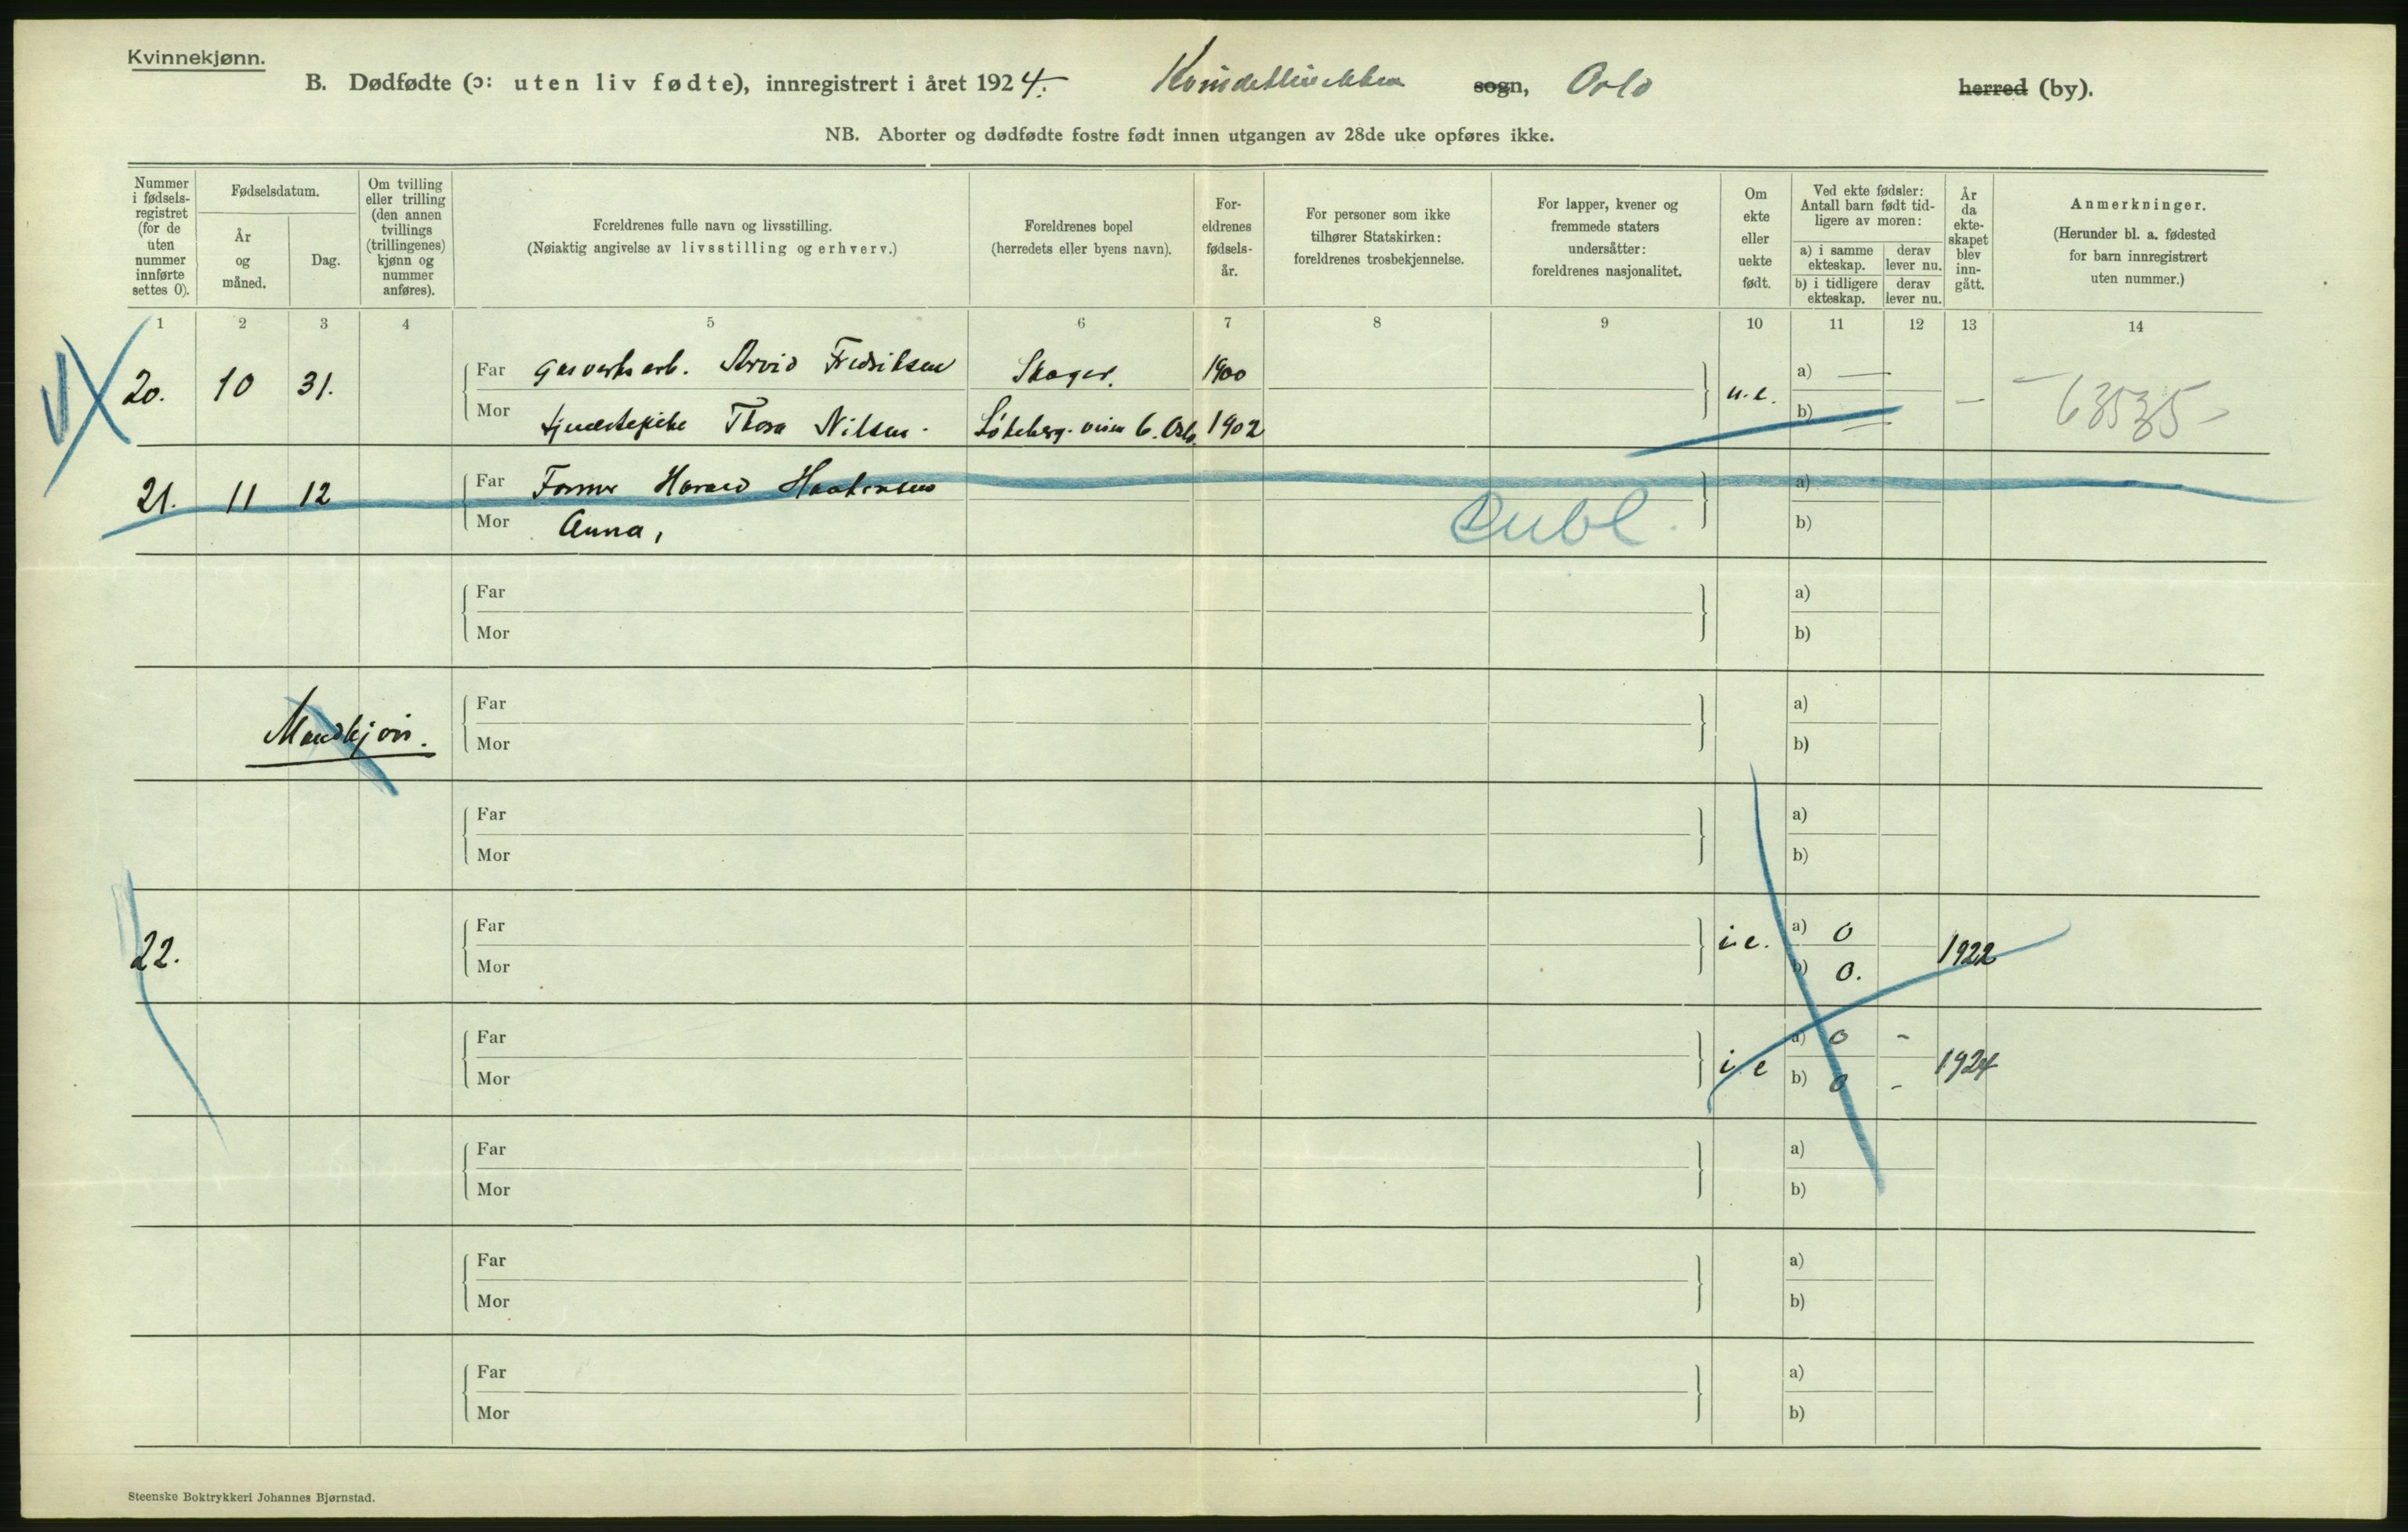 Kvinnekjønn.
B. Dødfødte (ɔ: uten liv fødte), innregistrert i året 1924. Kvindeklinikken sogn, Oslo herred (by).
NB. Aborter og dødfødte fostre født innen utgangen av 28de uke opføres ikke.
Nummer i fødsels-registret (for de uten nummer innførte settes 0).
Fødselsdatum.
År og måned.
Dag.
Om tvilling eller trilling (den annen tvillings (trillingenes) kjønn og nummer anføres).
Foreldrenes fulle navn og livsstilling.
(Nøiaktig angivelse av livsstilling og erhverv.)
Foreldrenes bopel
(herredets eller byens navn).
For-eldrenes fødsels-år.
For personer som ikke tilhører Statskirken: foreldrenes trosbekjennelse.
For lapper, kvener og fremmede staters undersåtter: foreldrenes nasjonalitet.
Om ekte eller uekte født.
Ved ekte fødsler: Antall barn født tid-ligere av moren:
a) i samme ekteskap.
derav lever nu.
b) i tidligere ekteskap.
derav lever nu.
År da ekte-skapet blev inn-gått.
Anmerkninger.
(Herunder bl. a. fødested for barn innregistrert uten nummer.)
1 2 3 4 5 6 7 8 9 10 11 12 13 14
20. 10 31. Far Gasverksarb. Arvid Fredriksen Skoger. 1900 u.e. a) — — 63535
Mor tjenestepike Thora Nilsen. 6. Oslo. 1902 b) —
21. 11 12 Far Former Harald Haakensen a)
Mor Anna, b)
Dubl.
Far a)
Mor b)
Mandkjøn.
Far a)
Mor b)
Far a)
Mor b)
22. Far i.e. a) 0 1922
Mor b) 0.
Far i e a) 0 - 1924
Mor b) 0 -
Far a)
Mor b)
Far a)
Mor b)
Far a)
Mor b)
Steenske Boktrykkeri Johannes Bjørnstad.